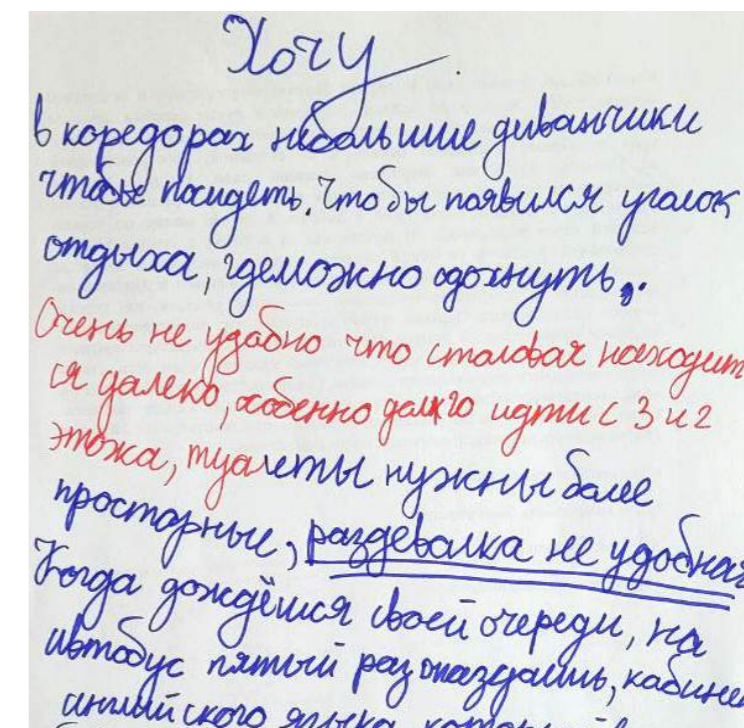 Хочу
в коредорах небольшие диванчики
чтобы посидеть. Чтобы появился уголок
отдыха, гдеможно одохнуть,.
Очень не удабно что сталовая находит
ся далеко, особенно далго идти с 3 и 2
этожа, туалеты нужны более
просторные, раздевалка не удобная
Когда дождёшся своей очереди, на
автобус пятый раз опаздаешь, кабинет
английского языка